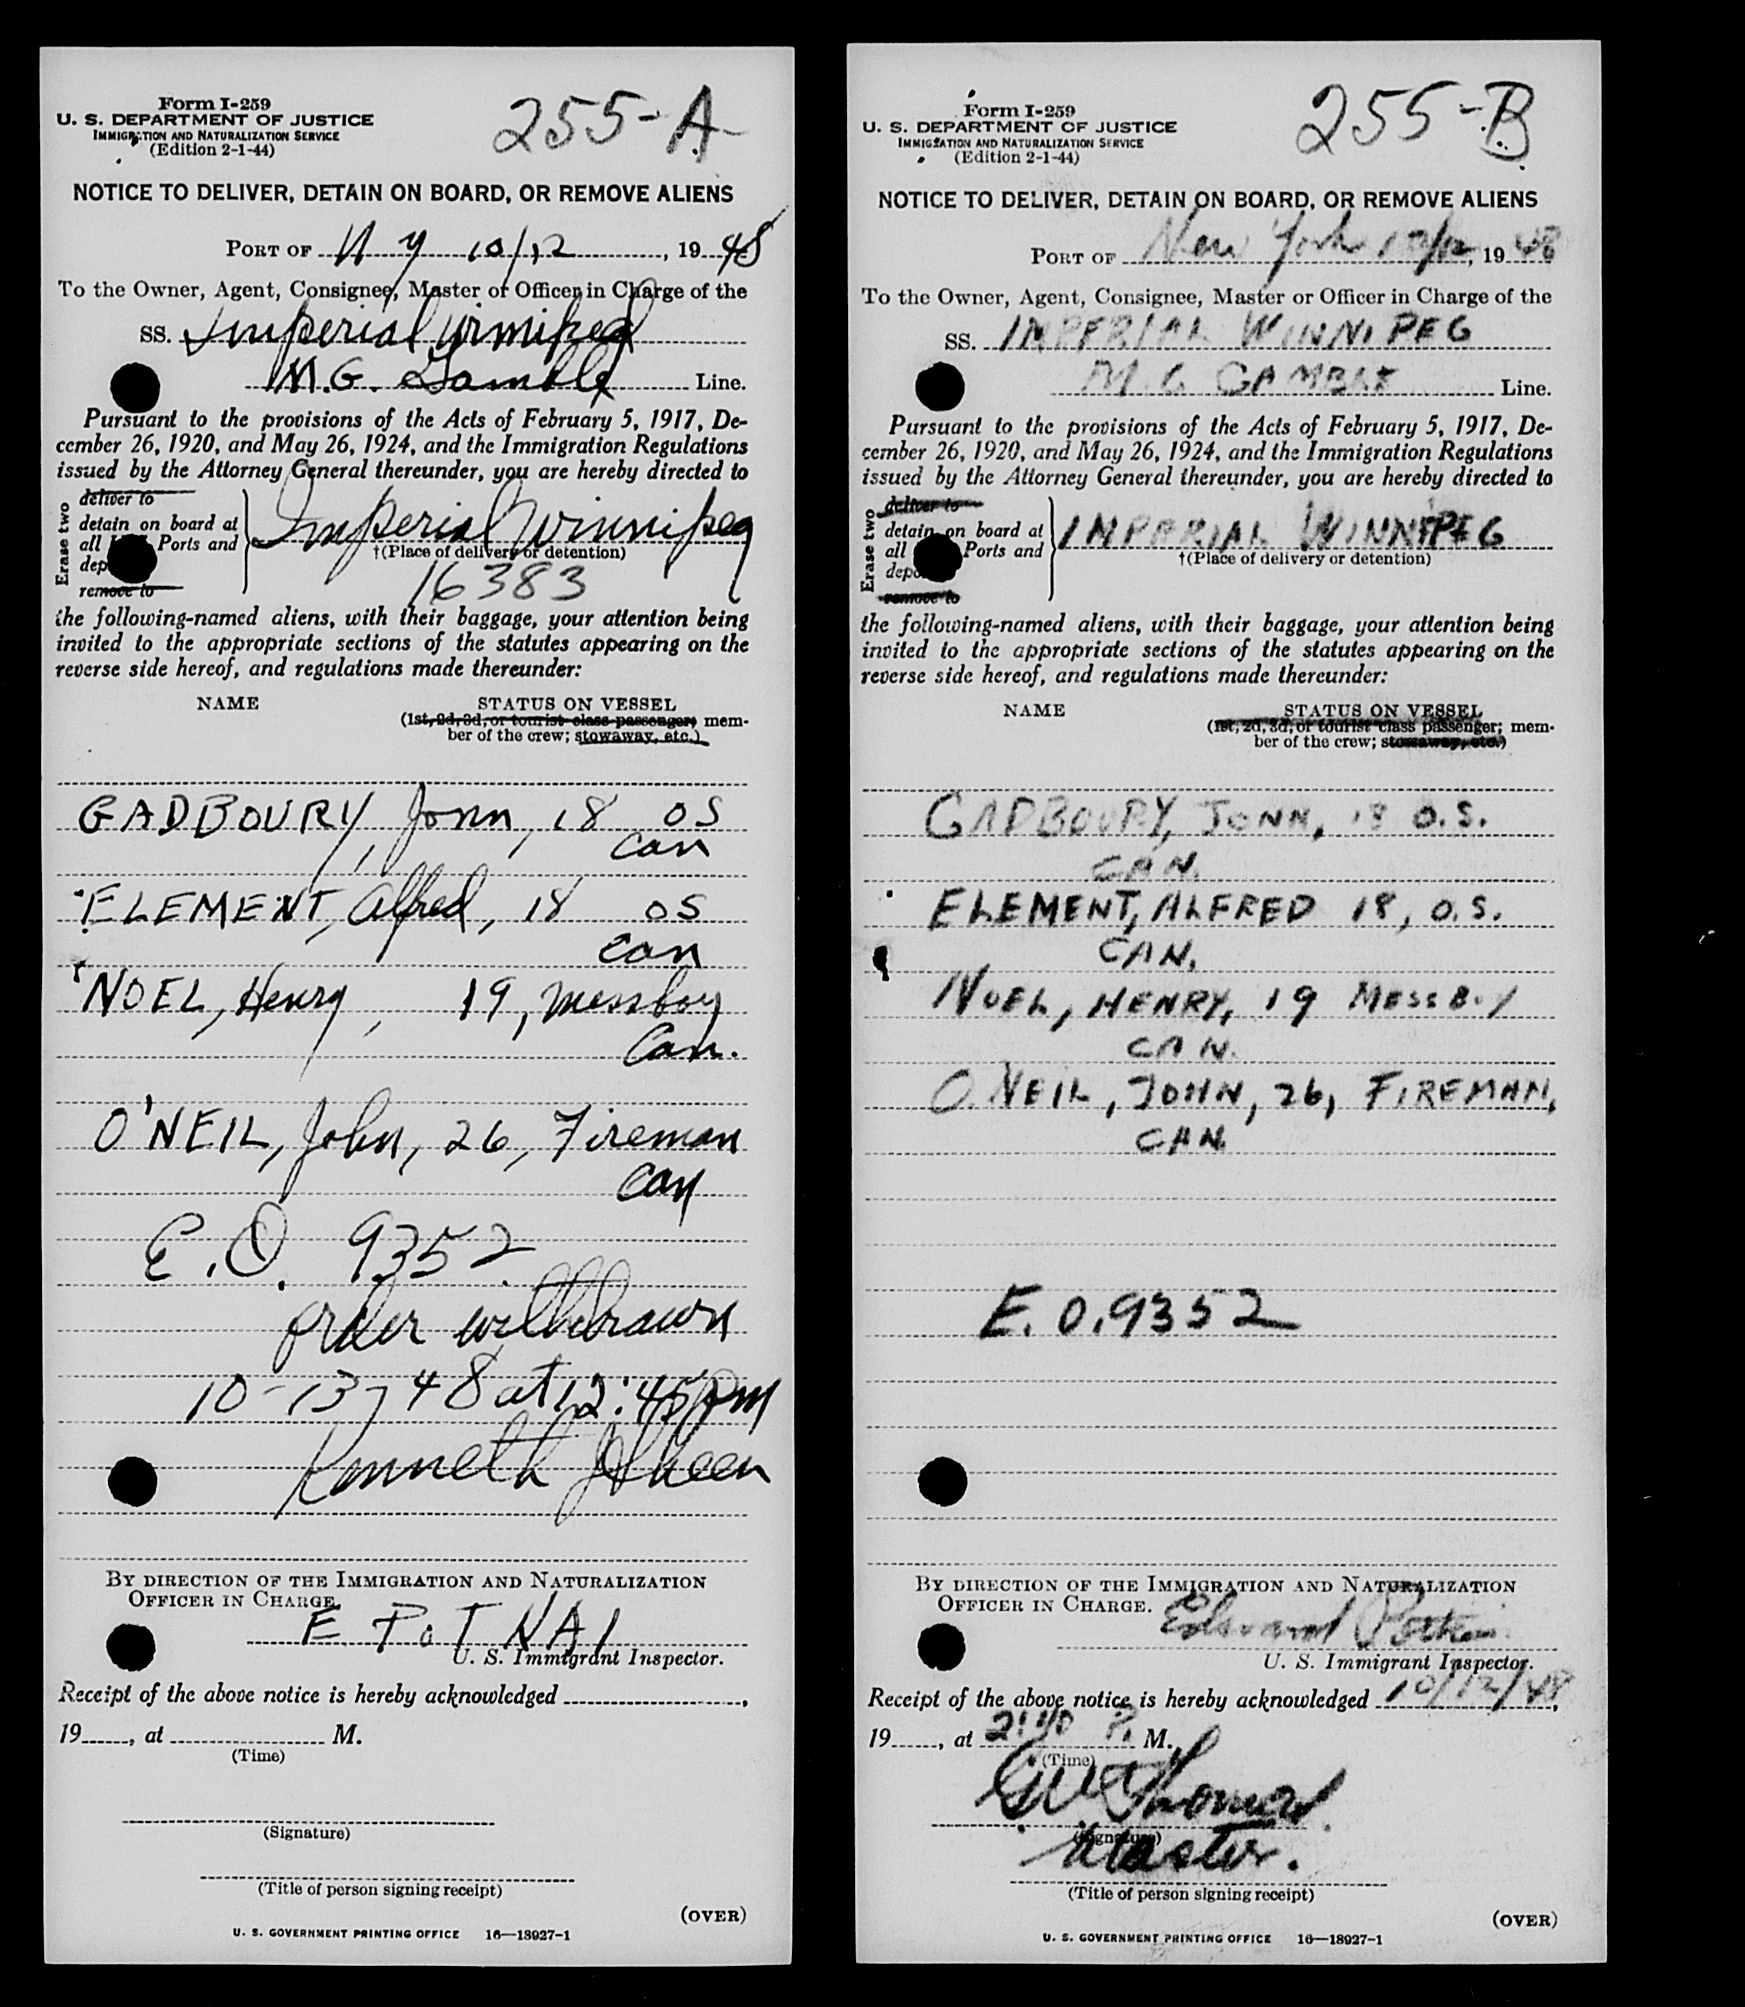 Form I-259
U. S. DEPARTMENT OF JUSTICE
IMMIGRATION AND NATURALIZATION SERVICE
(Edition 2-1-44)
255-A
NOTICE TO DELIVER, DETAIN ON BOARD, OR REMOVE ALIENS
PORT OF N Y 10/12, 1948
To the Owner, Agent, Consignee, Master or Officer in Charge of the
SS. Imperial Winnipeg
M. G. Gamble Line.
Pursuant to the provisions of the Acts of February 5, 1917, De-
cember 26, 1920, and May 26, 1924, and the Immigration Regulations
issued by the Attorney General thereunder, you are hereby directed to
Erase two
deliver to
detain on board at
all Ports and
dep
remove to
Imperial Winnipeg
†(Place of delivery or detention)
16383
the following-named aliens, with their baggage, your attention being
invited to the appropriate sections of the statutes appearing on the
reverse side hereof, and regulations made thereunder:
NAME STATUS ON VESSEL
(1st, 2d, 3d, or tourist class passenger; mem-
ber of the crew; stowaway, etc.)
GADBOURY, John, 18 OS
Can
ELEMENT, Alfred, 18 OS
Can
NOEL, Henry, 19, messboy
Can.
O'NEIL, John, 26, Fireman
Can
E.O. 9352
order withdrawn
10-13-48 at 12:45 PM
Kenneth
BY DIRECTION OF THE IMMIGRATION AND NATURALIZATION
OFFICER IN CHARGE.
E. POTKAI
U. S. Immigrant Inspector.
Receipt of the above notice is hereby acknowledged ,
19 , at M.
(Time)
(Signature)
(Title of person signing receipt)
(OVER)
U. S. GOVERNMENT PRINTING OFFICE 16—18927-1
Form I-259
U. S. DEPARTMENT OF JUSTICE
IMMIGRATION AND NATURALIZATION SERVICE
(Edition 2-1-44)
255-B
NOTICE TO DELIVER, DETAIN ON BOARD, OR REMOVE ALIENS
PORT OF New York 10/12, 1948
To the Owner, Agent, Consignee, Master or Officer in Charge of the
SS. IMPERIAL WINNIPEG
M. G. GAMBLE Line.
Pursuant to the provisions of the Acts of February 5, 1917, De-
cember 26, 1920, and May 26, 1924, and the Immigration Regulations
issued by the Attorney General thereunder, you are hereby directed to
Erase two
deliver to
detain on board at
all Ports and
depo
remove to
IMPERIAL WINNIPEG
†(Place of delivery or detention)
the following-named aliens, with their baggage, your attention being
invited to the appropriate sections of the statutes appearing on the
reverse side hereof, and regulations made thereunder:
NAME STATUS ON VESSEL
(1st, 2d, 3d, or tourist class passenger; mem-
ber of the crew; stowaway, etc.)
GADBOURY, JOHN, 18 O.S.
CAN.
ELEMENT, ALFRED 18, O.S.
CAN.
NOEL, HENRY, 19 MESSBOY
CAN.
O.NEIL, JOHN, 26, FIREMAN,
CAN.
E.O.9352
BY DIRECTION OF THE IMMIGRATION AND NATURALIZATION
OFFICER IN CHARGE.
Edward
U. S. Immigrant Inspector.
Receipt of the above notice is hereby acknowledged 10/12/48,
19 , at 2:40 P. M.
(Time)
G W Thomas
(Signature)
Master.
(Title of person signing receipt)
(OVER)
U. S. GOVERNMENT PRINTING OFFICE 16—18927-1